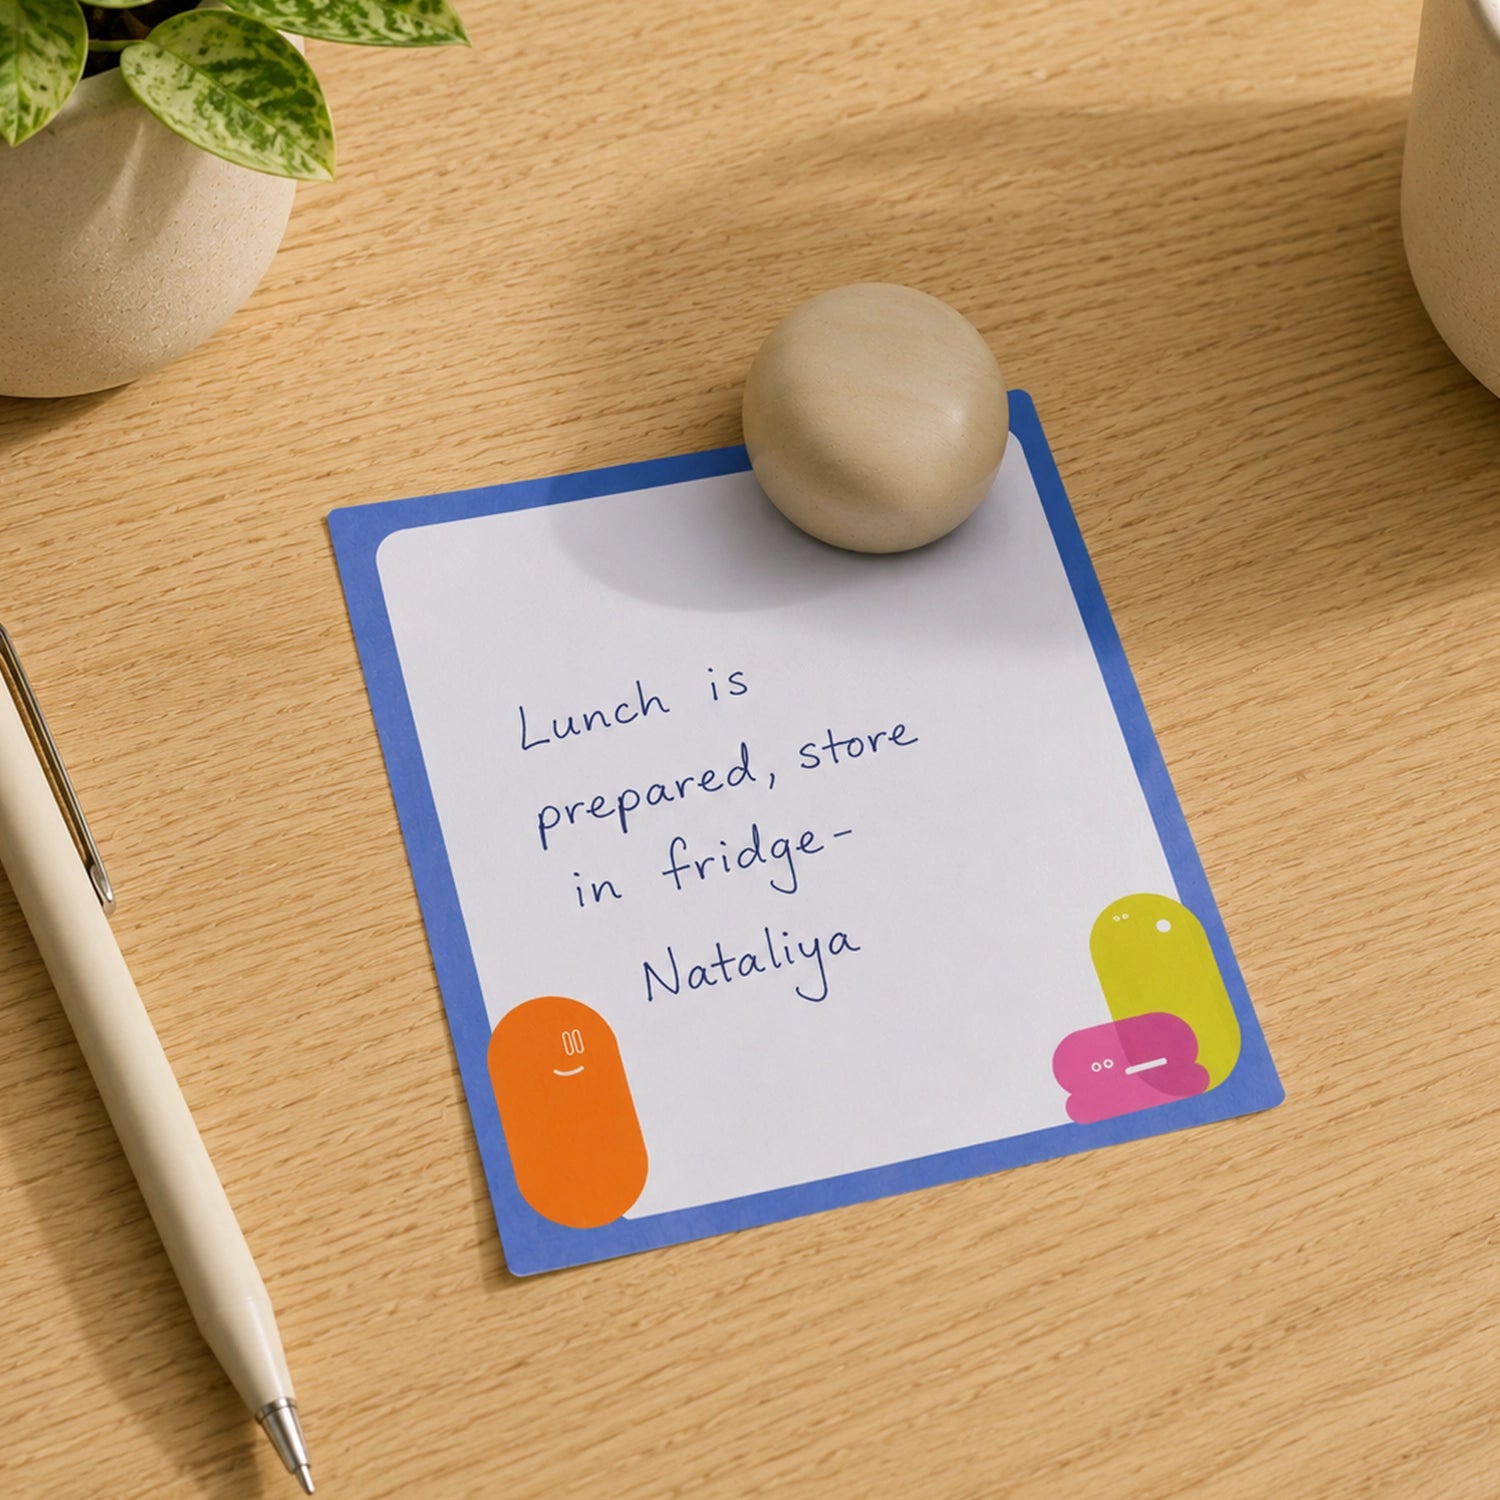 Lunch is
prepared, store
in fridge-
Nataliya